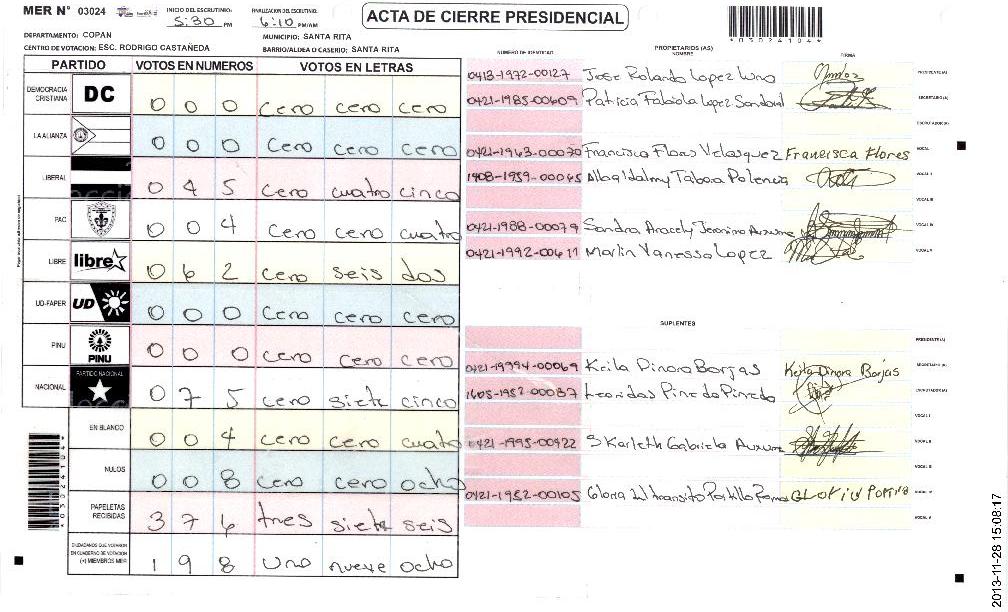 MER N° 03024
INICIO DEL ESCRUTINIO: 5:30 PM
FINALIZACION DEL ESCRUTINIO: 6:10 PM/AM
ACTA DE CIERRE PRESIDENCIAL
DEPARTAMENTO: COPÁN
MUNICIPIO: SANTA RITA
CENTRO DE VOTACION: ESC. RODRIGO CASTAÑEDA
BARRIO/ALDEA O CASERIO: SANTA RITA
PARTIDO VOTOS EN NUMEROS VOTOS EN LETRAS
DEMOCRACIA CRISTIANA DC 0 0 0 cero cero cero
LA ALIANZA 0 0 0 cero cero cero
LIBERAL 0 4 5 cero cuatro cinco
PAC 0 0 4 cero cero cuatro
LIBRE libre 0 6 2 cero seis dos
UD-FAPER UD 0 0 0 cero cero cero
PINU PINU 0 0 0 cero cero cero
NACIONAL PARTIDO NACIONAL 0 7 5 cero siete cinco
EN BLANCO 0 0 4 cero cero cuatro
NULOS 0 0 8 cero cero ocho
PAPELETAS RECIBIDAS 3 7 6 tres siete seis
CIUDADANOS QUE VOTARON EN CUADERNO DE VOTACION (+) MIEMBROS MER 1 9 8 uno nueve ocho
PROPIETARIOS (AS)
NUMERO DE IDENTIDAD NOMBRE FIRMA
0413-1972-00127 Jose Rolando Lopez PRESIDENTE(A)
0421-1985-00609 Patricia Fabiola Lopez Sandoval SECRETARIO(A)
ESCRUTADOR(A)
0421-1963-00070 Francisca Flores Velasquez Francisca Flores VOCAL I
1408-1959-00065 Alba Idalmy Tabora Polencia VOCAL II
VOCAL III
0421-1988-00079 Sandra Aracely Jeronimo VOCAL IV
0421-1992-00611 Marlin Vanessa Lopez VOCAL V
SUPLENTES
PRESIDENTE(A)
0421-19994-00069 Keila Dinora Borjas Keila Dinora Borjas SECRETARIO(A)
1605-1952-00037 Leonidas Pineda Pineda ESCRUTADOR(A)
VOCAL I
0421-1995-00422 Skarleth Gabriela VOCAL II
VOCAL III
0421-1952-00105 Gloria del transito Portillo VOCAL IV
VOCAL V
*030241044*
2013-11-28 15:08:17